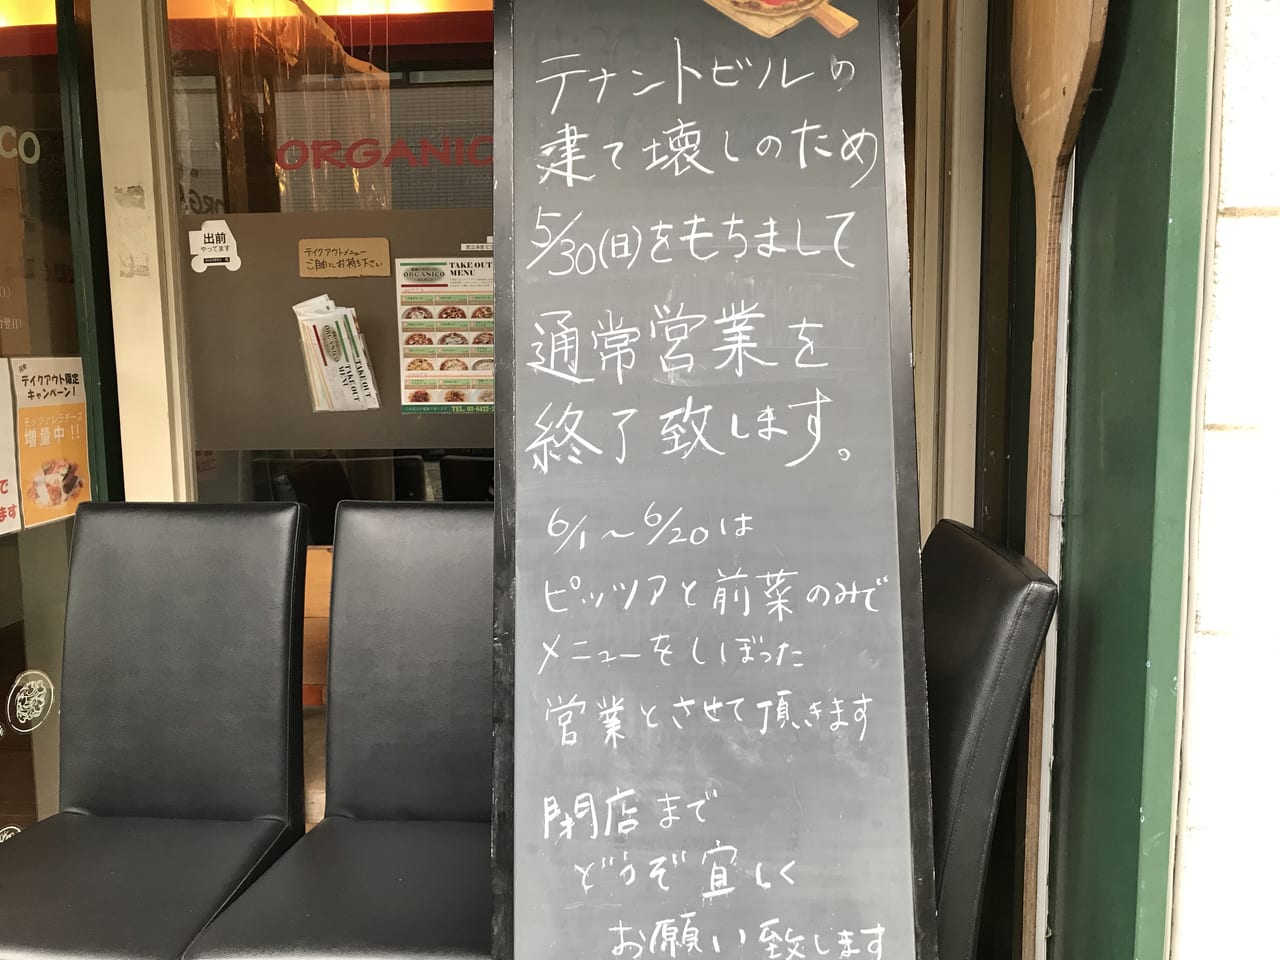 テナントビルの
建て壊しのため
5/30(日)をもちまして
通常営業を
終了致します。
6/1〜6/20は
ピッツアと前菜のみで
メニューをしぼった
営業とさせて頂きます
閉店まで
どうぞ宜しく
お願い致します
CO
ORGANIC
出前
やってます
テイクアウトメニュー
ご自由にお持ち下さい
ORGANICO
TAKE OUT
MENU
ORGANICO
TAKE OUT
MENU
テイクアウト限定
キャンペーン!
モッツァレラチーズ
増量中!!
で
ます